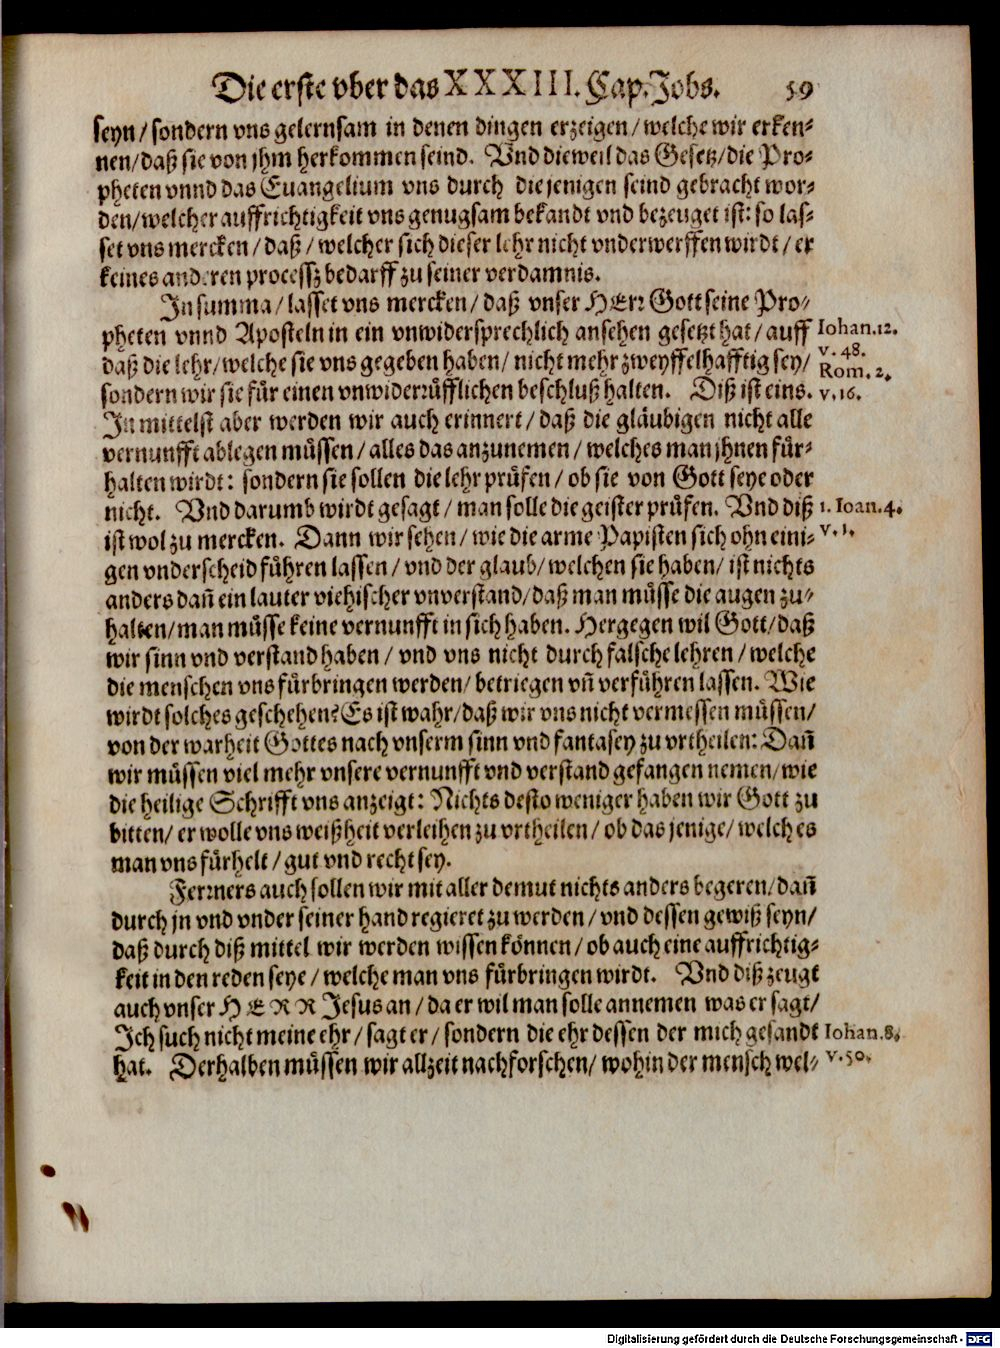 Die erste vber das XXXIII. Cap. Jobs. 59
seyn / sondern vns gelernsam in denen dingen erzeigen / welche wir erken-
nen / daß sie von jhm herkommen seind. Vnd dieweil das Gesetz / die Pro-
pheten vnnd das Euangelium vns durch die jenigen seind gebracht wor-
den / welcher auffrichtigkeit vns genugsam bekandt vnd bezeuget ist: so las-
set vns mercken / daß / welcher sich dieser lehr nicht vnderwerffen wirdt / er
keines anderen processz bedarff zu seiner verdamnis.
In summa / lasset vns mercken / daß vnser HErr Gott seine Pro-
pheten vnnd Aposteln in ein vnwidersprechlich ansehen gesetzt hat / auff
Iohan. 12.
v. 48.
daß die lehr / welche sie vns gegeben haben / nicht mehr zweyffelhafftig sey /
Rom. 2.
sondern wir sie für einen vnwiderrüfflichen beschluß halten. Diß ist eins.
v. 16.
In mittelst aber werden wir auch erinnert / daß die gläubigen nicht alle
vernunfft ablegen müssen / alles das anzunemen / welches man jhnen für-
halten wirdt: sondern sie sollen die lehr prüfen / ob sie von Gott seye oder
nicht. Vnd darumb wirdt gesagt / man solle die geister prüfen. Vnd diß
1. Ioan. 4.
ist wol zu mercken. Dann wir sehen / wie die arme Papisten sich ohn eini-
v. 1.
gen vnderscheid führen lassen / vnd der glaub / welchen sie haben / ist nichts
anders dañ ein lauter viehischer vnverstand / daß man müsse die augen zu-
halten / man müsse keine vernunfft in sich haben. Hergegen wil Gott / daß
wir sinn vnd verstand haben / vnd vns nicht durch falsche lehren / welche
die menschen vns fürbringen werden / betriegen vñ verführen lassen. Wie
wirdt solches geschehen? Es ist wahr / daß wir vns nicht vermessen müssen /
von der warheit Gottes nach vnserm sinn vnd fantasey zu vrtheilen: Dañ
wir müssen viel mehr vnsere vernunfft vnd verstand gefangen nemen / wie
die heilige Schrifft vns anzeigt: Nichts desto weniger haben wir Gott zu
bitten / er wolle vns weißheit verleihen zu vrtheilen / ob das jenige / welches
man vns fürhelt / gut vnd recht sey.
Ferrners auch sollen wir mit aller demut nichts anders begeren / dañ
durch jn vnd vnder seiner hand regieret zu werden / vnd dessen gewiß seyn /
daß durch diß mittel wir werden wissen können / ob auch eine auffrichtig-
keit in den reden seye / welche man vns fürbringen wirdt. Vnd diß zeugt
auch vnser HERR Jesus an / da er wil man solle annemen was er sagt /
Ich such nicht meine ehr / sagt er / sondern die ehr dessen der mich gesandt
Iohan. 8.
hat. Derhalben müssen wir allzeit nachforschen / wohin der mensch wel-
v. 50.
Digitalisierung gefördert durch die Deutsche Forschungsgemeinschaft - DFG